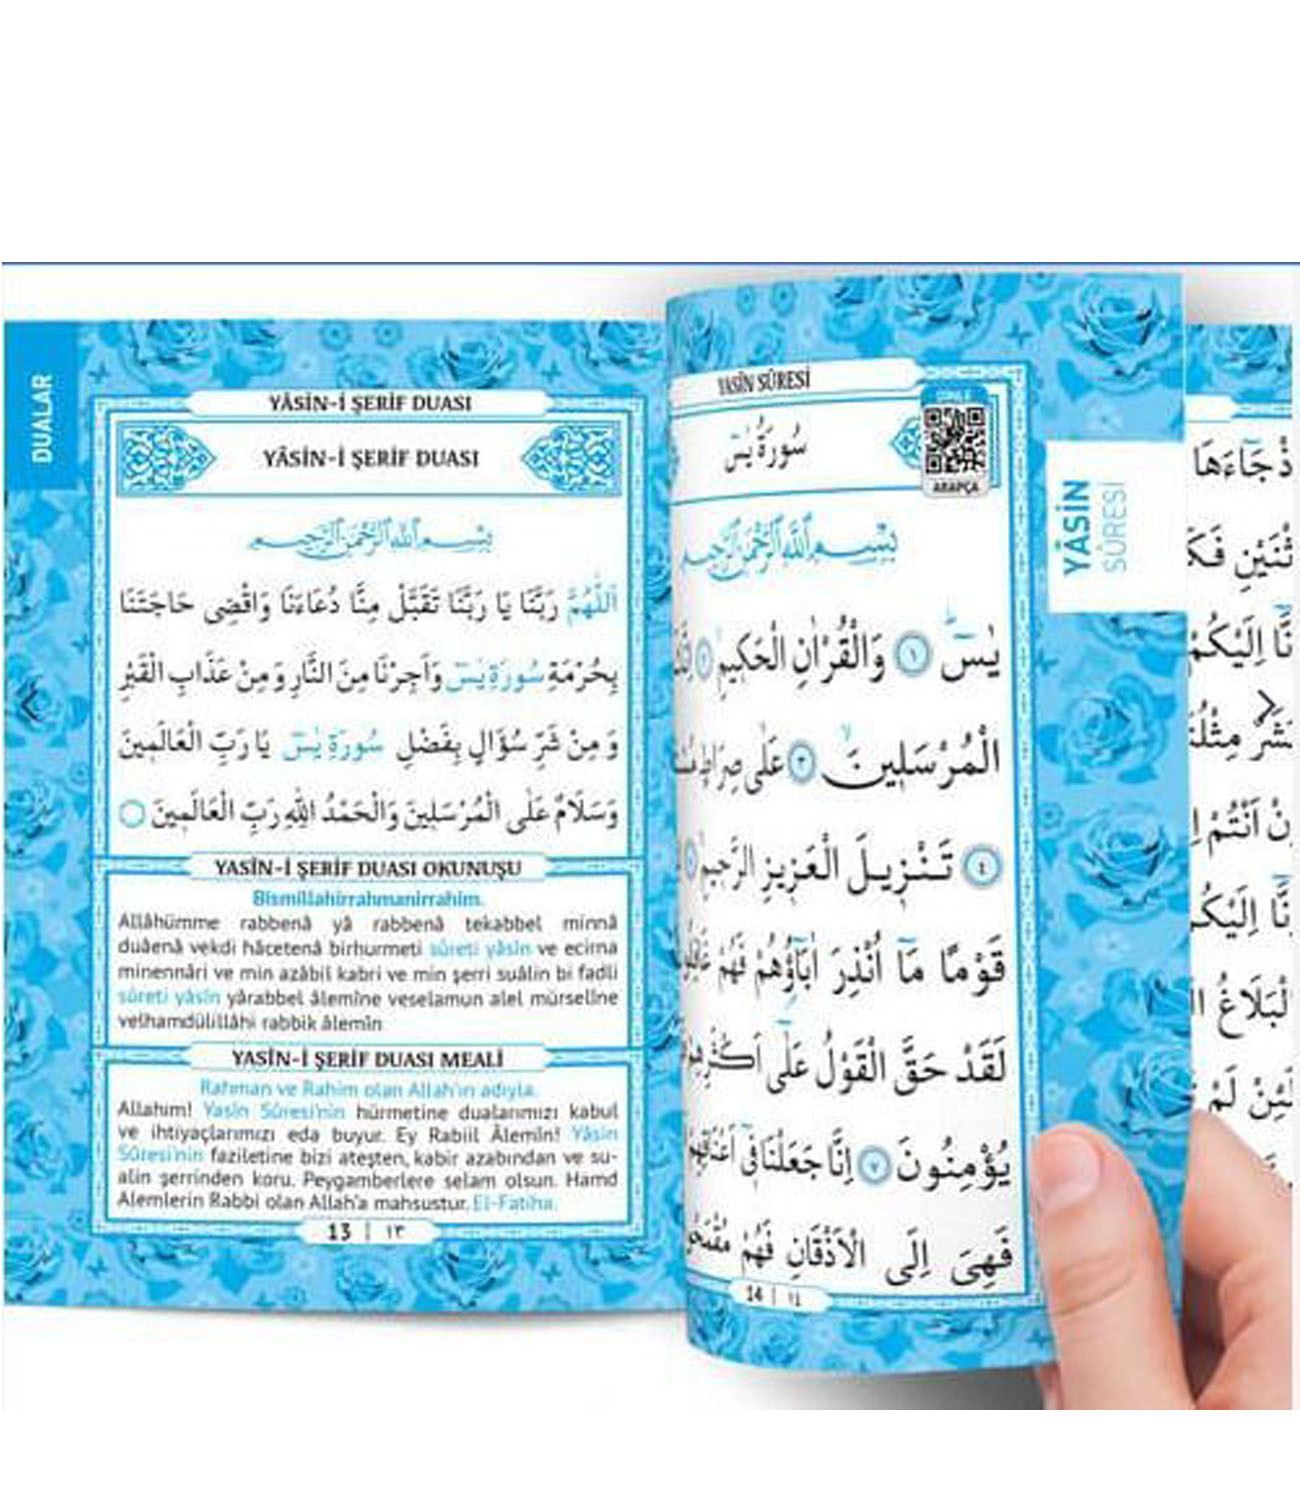 DUALAR
YÂSİN-İ ŞERİF DUASI
YÂSİN-İ ŞERİF DUASI
بِسْمِ اللهِ الرَّحْمٰنِ الرَّحِيمِ
اَللّٰهُمَّ رَبَّنَا يَا رَبَّنَا تَقَبَّلْ مِنَّا دُعَاءَنَا وَاقْضِى حَاجَتَنَا
بِحُرْمَةِ سُورَةِ يٰسٓ وَاَجِرْنَا مِنَ النَّارِ وَمِنْ عَذَابِ الْقَبْرِ
وَمِنْ شَرِّ سُؤَالٍ بِفَضْلِ سُورَةِ يٰسٓ يَا رَبَّ الْعَالَمِينَ
وَسَلَامٌ عَلَى الْمُرْسَلِينَ وَالْحَمْدُ اللهِ رَبِّ الْعَالَمِينَ
YASİN-İ ŞERİF DUASI OKUNUŞU
Bismillahirrahmanirrahim.
Allâhümme rabbenâ yâ rabbenâ tekabbel minnâ
duâenâ vekdi hâcetenâ birhurmeti sûreti yâsîn ve ecirna
minennâri ve min azâbil kabri ve min şerri suâlin bi fadli
sûreti yâsîn yârabbel âlemîne veselamun alel mürselîne
velhamdülillâhi rabbik âlemîn
YASİN-İ ŞERİF DUASI MEALİ
Rahman ve Rahim olan Allah'ın adıyla.
Allahım! Yasin Sûresi'nin hürmetine dualarımızı kabul
ve ihtiyaçlarımızı eda buyur. Ey Rabiil Âlemîn! Yâsin
Sûresi'nin faziletine bizi ateşten, kabir azabından ve su-
alin şerrinden koru. Peygamberlere selam olsun. Hamd
Alemlerin Rabbi olan Allah'a mahsustur. El-Fatiha.
13 | ١٣
YASÎN SÛRESİ
سُورَةُ يٰسٓ
DİNLE
ARAPÇA
بِسْمِ اللهِ الرَّحْمٰنِ الرَّحِيمِ
يٰسٓ ١ وَالْقُرْاٰنِ الْحَكِيمِ ٢
الْمُرْسَلِينَ ٣ عَلٰى صِرَاطٍ
٤ تَنْزِيلَ الْعَزِيزِ الرَّحِيمِ
قَوْمًا مَآ اُنْذِرَ اٰبَآؤُهُمْ فَهُمْ
لَقَدْ حَقَّ الْقَوْلُ عَلٰٓى اَكْثَرِهِمْ
يُؤْمِنُونَ ٧ اِنَّا جَعَلْنَا فِٓى اَعْنَاقِهِمْ
فَهِىَ اِلَى الْاَذْقَانِ فَهُمْ
14 | ١٤
YÂSİN
SÛRESİ
جَآءَهَا
اِلَيْكُمْ
مِثْلُنَا
اَنْتُمْ
اِلَيْكُمْ
لَمْ